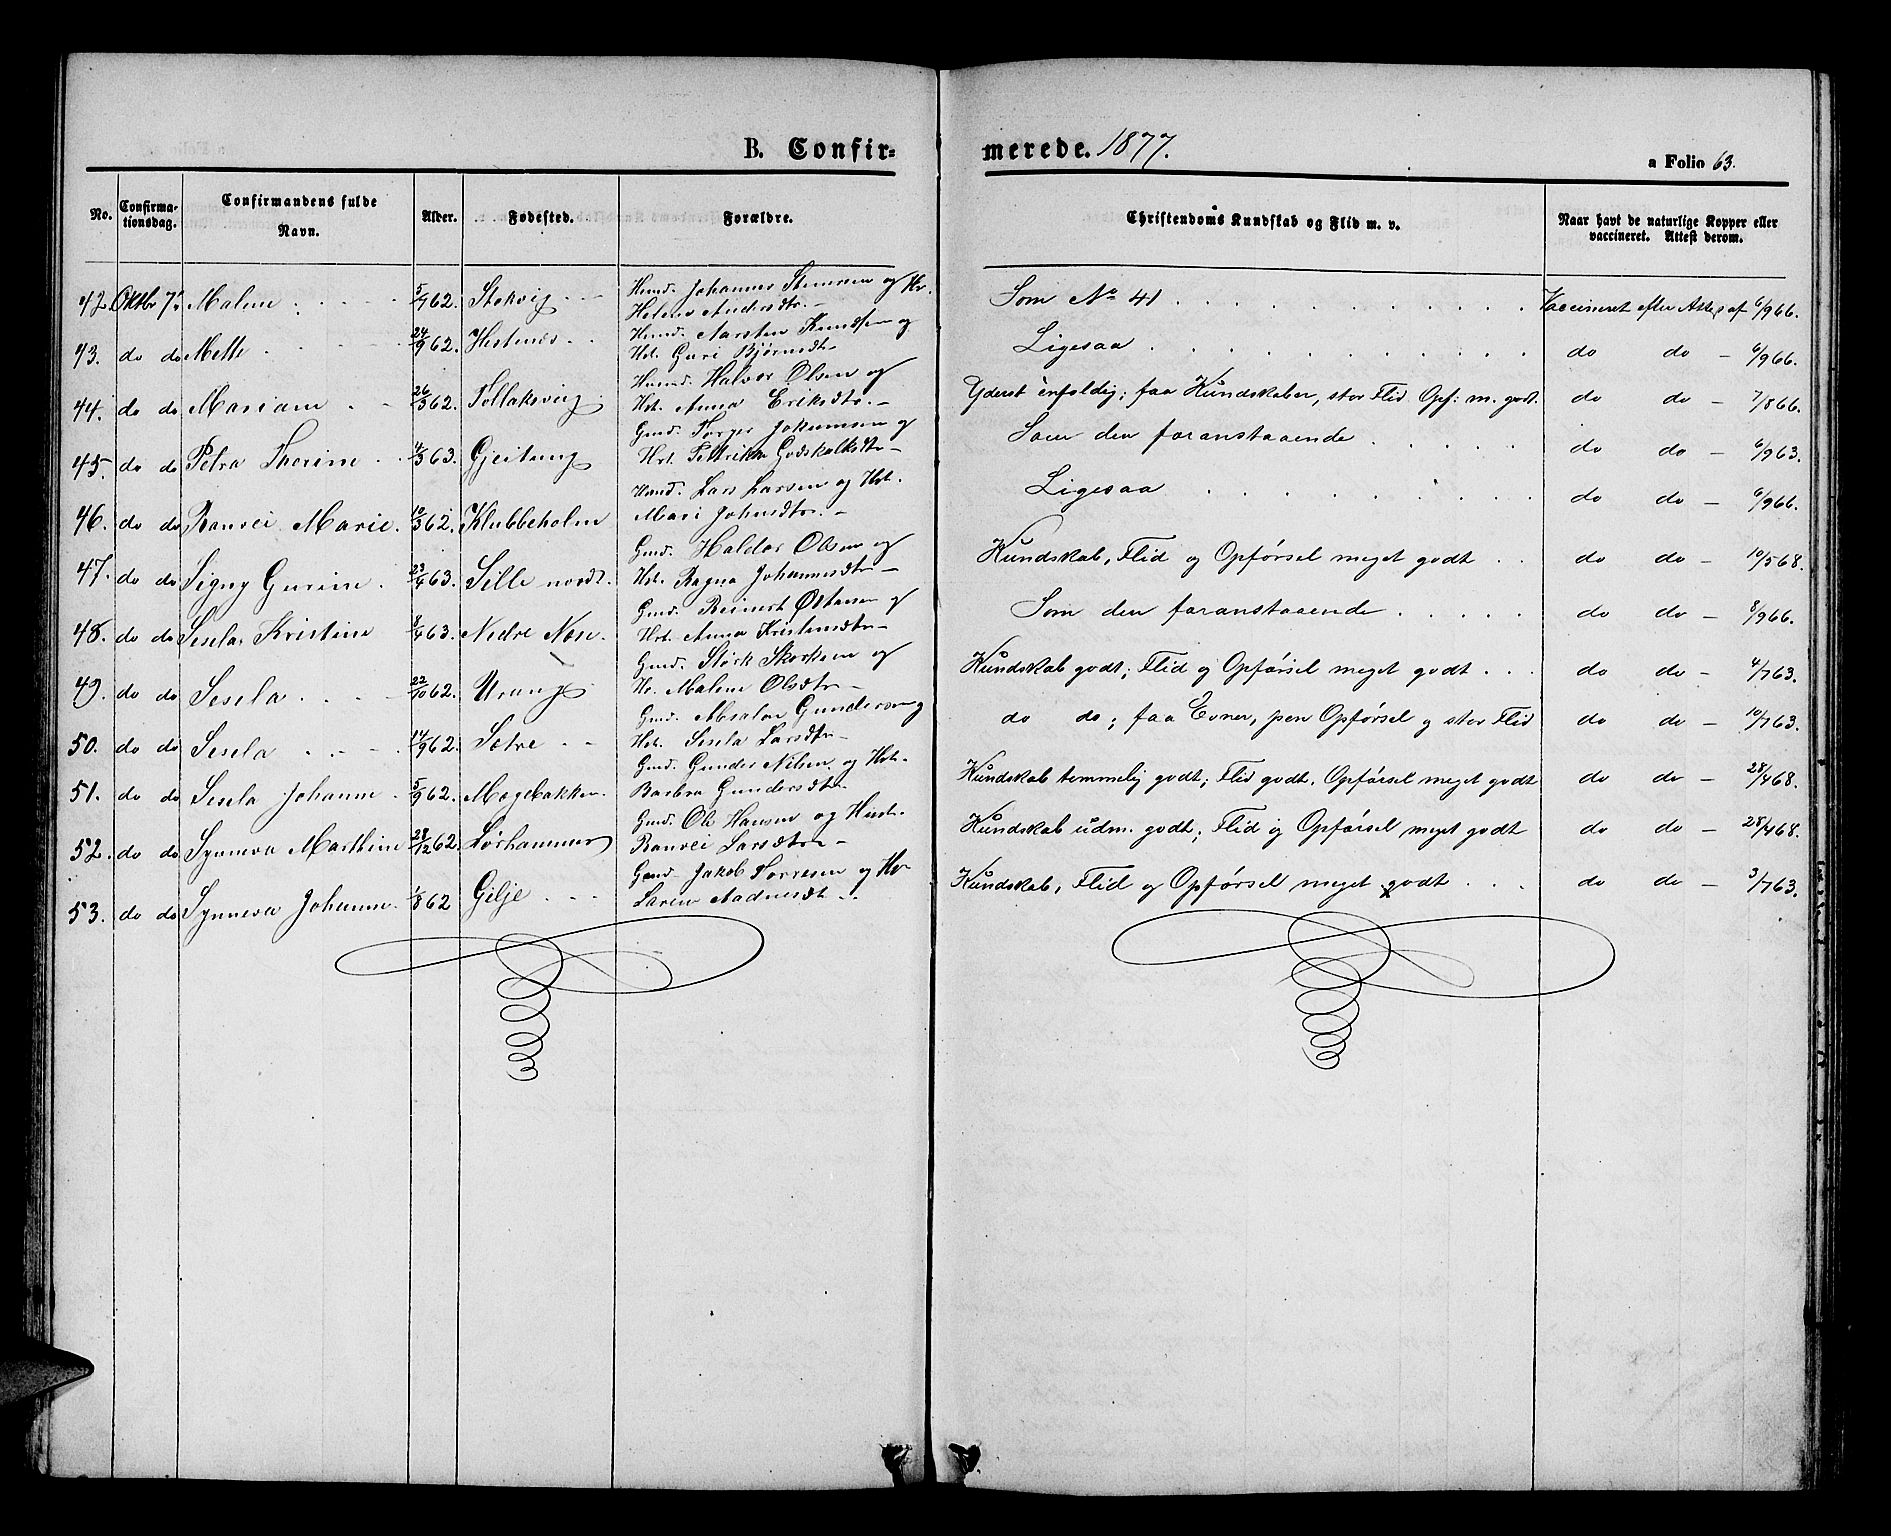 B. Confir-
merede. 1877.
a Folio 63.
No.
Confirma-
tionsdag.
Confirmandens fulde
Navn.
Alder.
Fødested.
Forældre.
Christendoms Kundskab og Flid m. v.
Naar havt de naturlige Kopper eller
vaccineret. Attest derom.
42. Oktbr 7. Malene 5/4 62. Stokvig Hmd. Johannes Stensen og Hr. Som No 41 Vaccineret efter Attest af 6/9 66.
Helene Andersdtr.
43. do do Mette 24/9 62. Hestenæs Hmd. Karsten Knudsen og Ligesaa do do 6/9 66.
Hst. Guri Bjørnsdtr
44. do do Mariane 26/3 62. Tollaksvig Huusmd. Halvor Olsen og Yderst enfoldig; faa Kundskaber, stor Flid Opf: m. godt. do do 7/8 66.
Hst. Anna Eriksdtr.
45. do do Petra Thorine 4/3 63. Gjeitung Gmd. Torger Jokumsen og Som den foranstaaende do do 6/9 63.
Hst. Petrikke Godskalksdtr
46. do do Ranvei Marie. 10/3 62. Klubbeholm Hmd. Lars Larsen og Hst. Ligesaa do do 6/9 66.
Mari Johnsdtr.
47. do do Signy Gurine 23/4 63. Sille nordr. Gmd. Haldor Olsen og Kundskab, Flid og Opførsel meget godt do do 10/5 68.
Hst. Ragna Johannesdtr
48. do do Sesela Kristine 8/4 63. Nedre Næs. Gmd. Reinert Østensen og Som den foranstaaende do do 8/9 66.
Hst. Anna Kristensdtr
49. do do Sesela 22/10 62. Urang Gmd. Størk Størksen og Kundskab godt; Flid og Opførsel meget godt do do 4/7 63.
Hr. Malene Olsdtr
50. do do Sesela 14/9 62. Sætre Gmd. Gundersen og do do; faa Evner, pen Opførsel og stor Flid do do 10/7 63.
Hst. Sesela Larsdtr
51. do do Sesela Johanne 5/9 62. Mogebakken. Gmd. Gunder Nilsen og Hst. Kundskab temmelig godt; Flid godt. Opførsel meget godt do do 28/4 68.
Barbra Gundersdtr
52. do do Synneva Marthine 28/12 62. Lørhammer Gmd. Ole Hansen og Hust. Kundskab udm. godt; Flid og Opførsel meget godt do do 28/4 68.
Ranvei Larsdtr
53. do do Synneva Johanne 1/8 62 Gilje Gmd. Jakob Torresen og Hr Kundskab, Flid og Opførsel meget godt do do 3/7 63.
Karen Aadnesdt